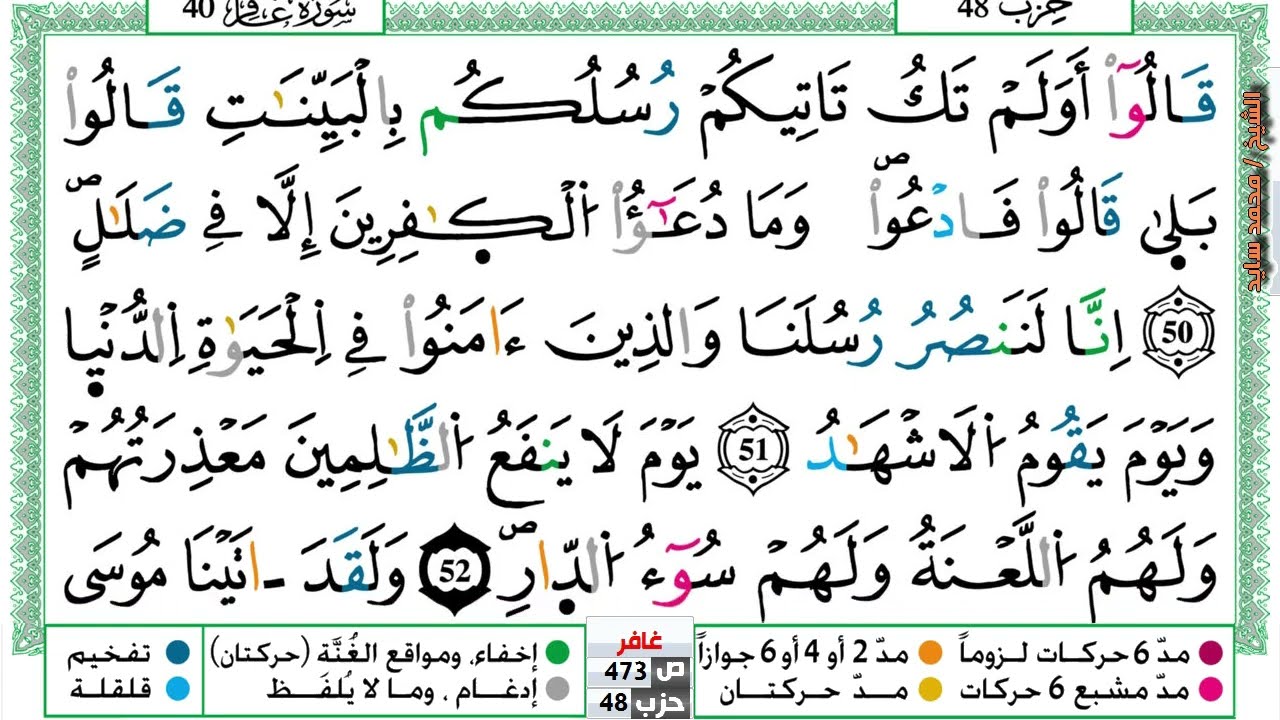 حزب 48
سورة غافر 40
قَالُوٓاْ أَوَلَمْ تَكُ تَاتِيكُمْ رُسُلُكُم بِالْبَيِّنَٰتِ قَالُواْ
بَلَىٰ قَالُواْ فَادْعُواْۖ وَمَا دُعَٰٓؤُاْ اُ۬لْكٰ۪فِرِينَ إِلَّا فِے ضَلَٰلٍۖ
50 اِنَّا لَنَنصُرُ رُسُلَنَا وَالذِينَ ءَامَنُواْ فِے اِ۬لْحَيَوٰةِ اِ۬لدُّنْي۪ا
وَيَوْمَ يَقُومُ اُ۬لَاشْهَٰدُ 51 يَوْمَ لَا يَنفَعُ اُ۬لظَّٰلِمِينَ مَعْذِرَتُهُمْ
وَلَهُمُ اُ۬للَّعْنَةُ وَلَهُمْ سُوٓءُ اُ۬لدّ۪ارِۖ 52 وَلَقَدَ ـ اتَيْنَا مُوسَى
الشيخ / محمد سايد
مدّ 6 حركات لزوماً مدّ 2 أو 4 أو 6 جوازاً
مدّ مشبع 6 حركات مدّ حركتان
غافر
ص 473
حزب 48
إخفاء، ومواقع الغُنَّة (حركتان) تفخيم
إدغام، وما لا يُلفَظ قلقلة